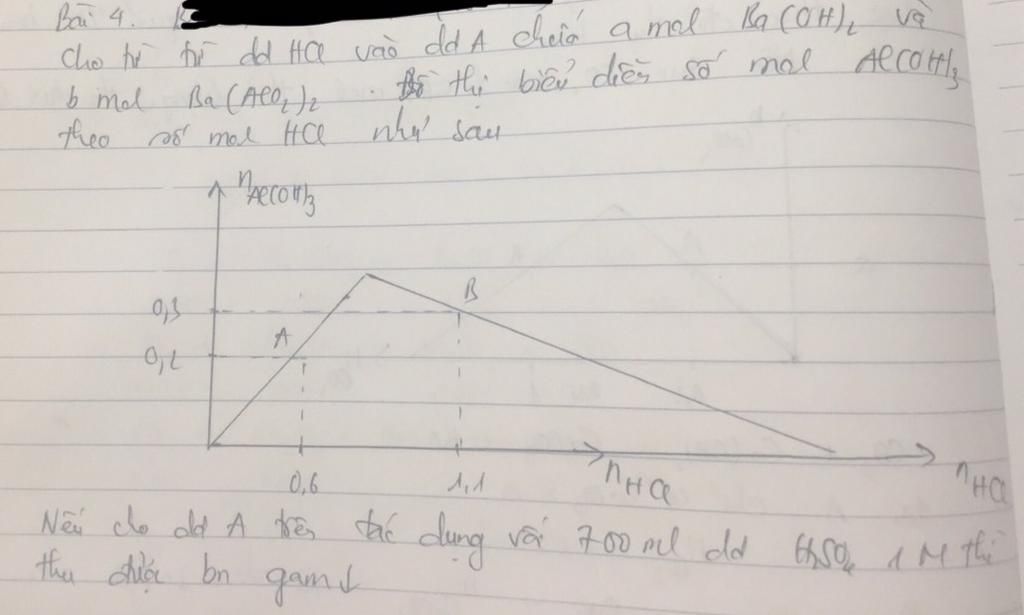 Bài 4.
Cho từ từ dd HCl vào dd A chứa a mol Ba(OH)2 và
b mol Ba(AlO2)2. Đồ thị biểu diễn số mol Al(OH)3
theo số mol HCl như sau
nAl(OH)3
0,3
B
A
0,2
0,6
1,1
nHCl
nHCl
Nếu cho dd A trên tác dụng với 700 ml dd H2SO4 1M thì
thu được bn gam↓